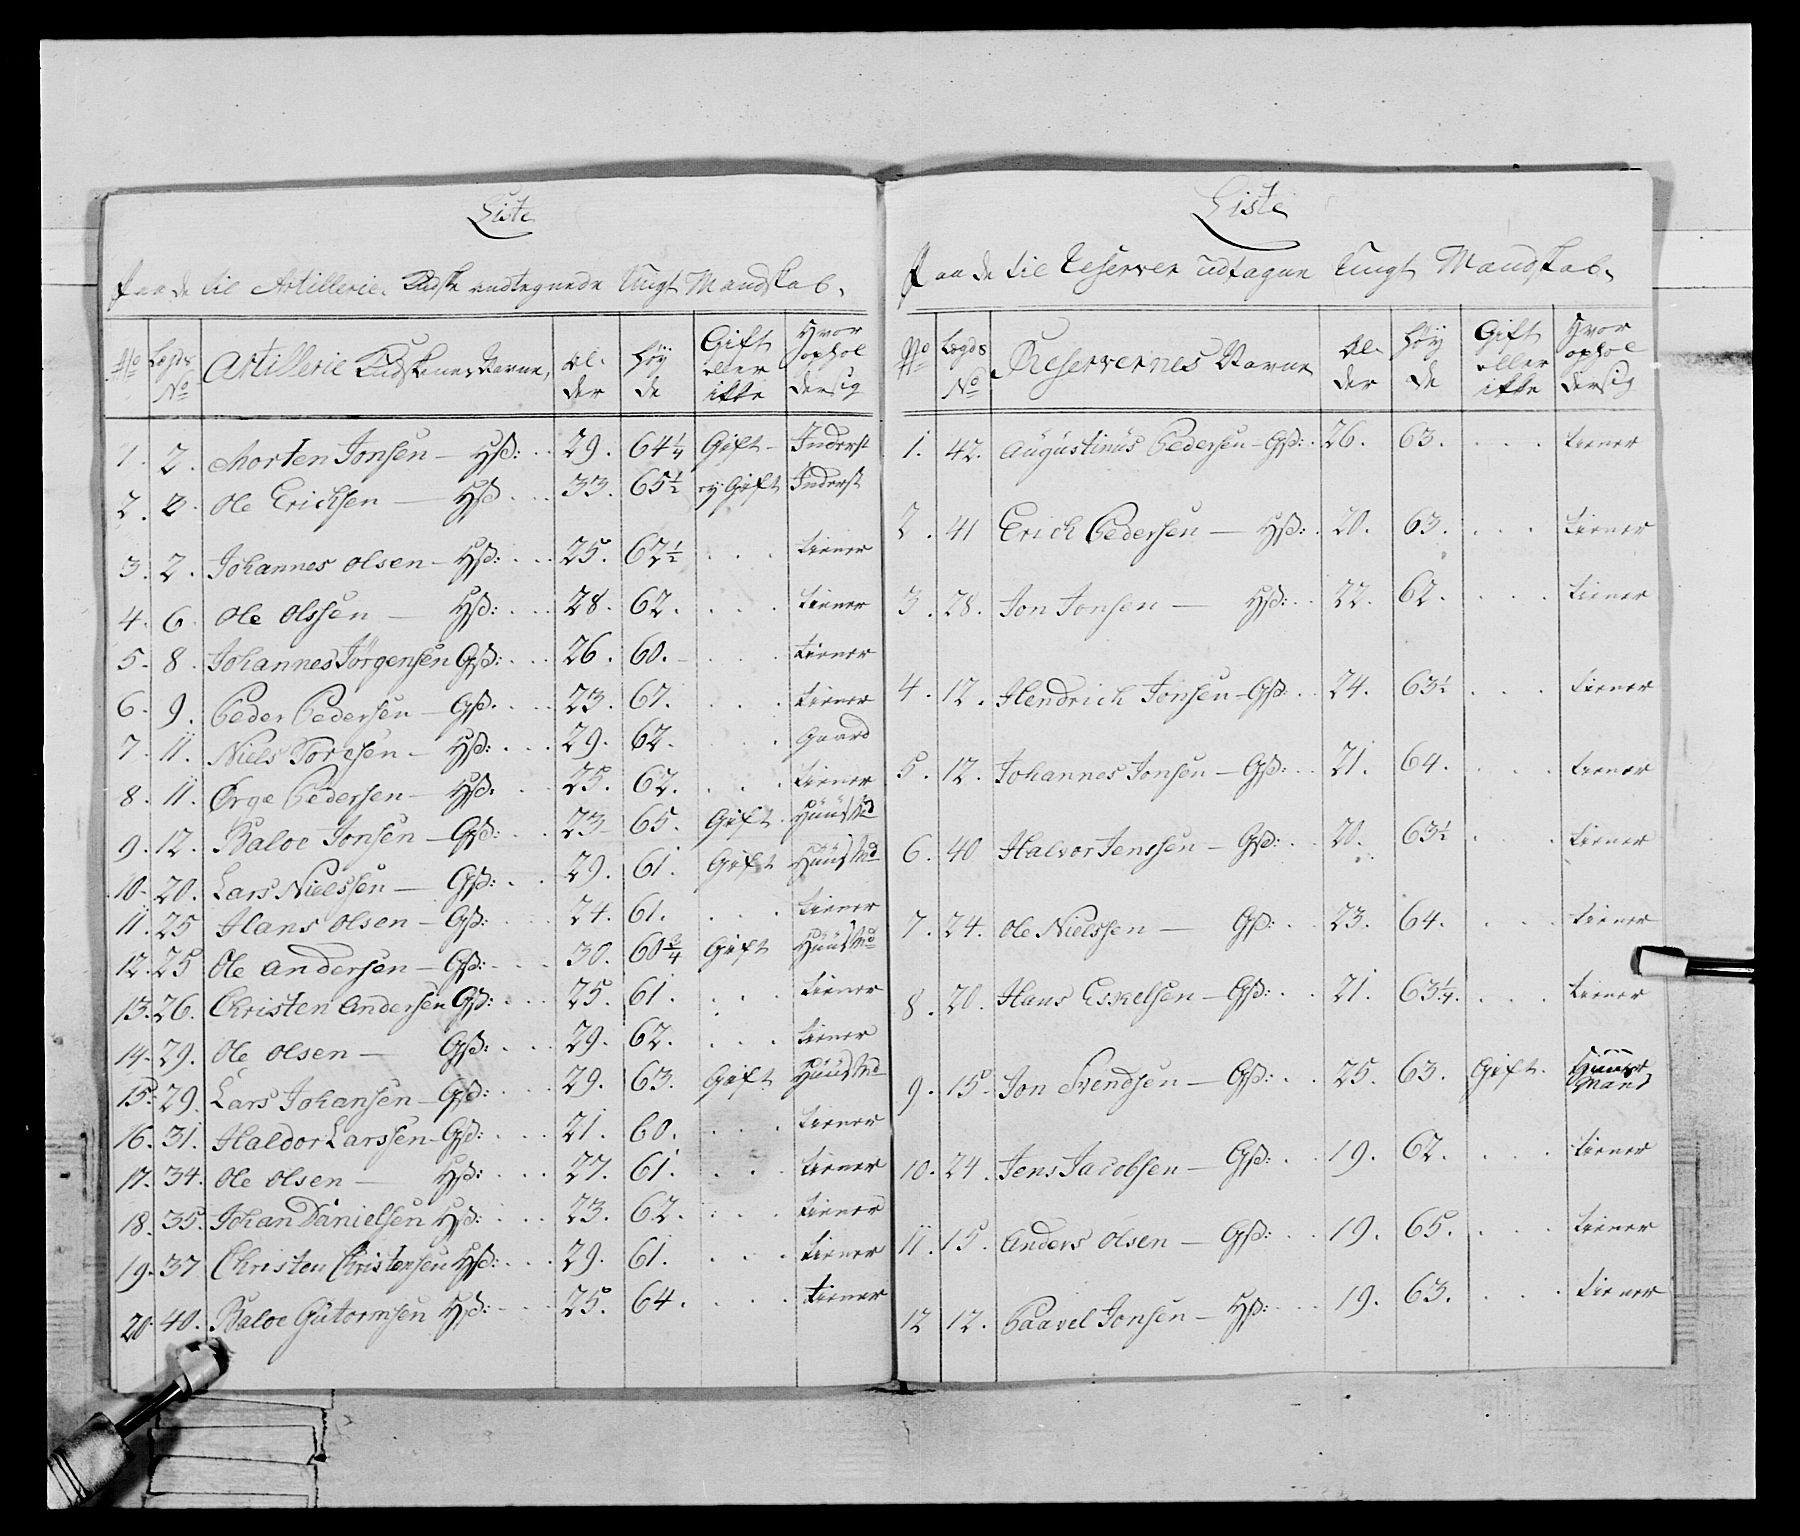 Liste
Paa de til Artillerie Kudske andtegnede Ungt Mandskab.
No Lægds No Artillerie Kudskenes Navne, Al- der Høy de Gift eller ikke Hvor ophol dersig
1. 2. Morten Jonsen — Hsd: .. 29. 64¼ Gift - Inderst
2. 2. Ole Erichsen — Hsd ... 33. 65½ ej Gift Inderst
3. 2. Johannes Olsen - Hsd: ... 25. 62½ . . . tiener
4. 6. Ole Olssen — Hsd: ... 28. 62. . . . tiener
5. 8. Johannes Jørgensen Gsd: ... 26. 60. - . . . tiener
6. 9. Peder Pedersen - Gsd. ... 23. 61. . . . tiener
7. 11. Niels Toresen - Hsd: ... 29. 62. . . . Gaard
8. 11. Ørge Pedersen - Hsd: ... 25. 62. . . . tiener
9. 12. Baloe Jonsen - Gsd: ... 23 - 65. Gift. Huus Md
10. 20. Lars Nielssen — Gsd: . . 29. 61. Gift Huus Md
11. 25 Hans Olsen - Gsd: ... 24. 61. . . . tiener
12. 25 Ole Andersen - Gsd: ... 30. 60¾ Gift Huus Md
13. 26. Christen Andersen Gsd: ... 25. 61. . . . tiener
14. 29. Ole Olsen — Gsd: ... 29. 62. . . . tiener
15. 29. Lars Johansen - Gsd: ... 29. 63. Gift Huus Md
16. 31. Haldor Larssen - Gsd: ... 21. 60. . . . tiener
17. 34. Ole Olsen — Hsd: ... 27. 61. . . . tiener
18. 35. Johan Danielsen Hsd: ... 23. 62. . . . tiener
19. 37 Christen Christensen Hsd: ... 29. 61. . . . tiener
20. 40. Baloe Gutormsen Hsd: ... 25. 64. . . . tiener
Liste
Paa de til Reserver udtagne Ungt Mandskab.
No Lægds No Reservernes Navne Al- der Høy de Gift eller ikke Hvor ophol dersig
1. 42. Augustinus Pedersen - Gsd: . 26. 63. . . . tiener
2. 41 Erich Pedersen — Hsd: . 20. 63. . . . tiener
3. 28. Jon Jonsen — Hsd: .. 22. 62. . . . tiener
4. 12. Hendrich Jonsen - Gsd: .. 24. 63½ . . . tiener
5. 12. Johannes Jonsen — Gsd: .. 21. 64. . . . tiener
6. 40 Halvor Jenssen — Gsd: .. 20. 63½ . . . tiener
7. 24. Ole Nielssen — Gsd: .. 23. 64. . . . tiener
8. 20. Hans Eskelsen — Gsd: .. 21. 63¼. . . . tiener
9. 15 - Jon Svendsen — Gsd: .. 25. 63. Gift. Huus Mand
10. 24. Jens Jacobsen — Gsd: .. 19. 62. . . . tiener
11. 15. Anders Olsen — Gsd: .. 19. 65. . . . tiener
12 12. Paavel Jonsen — Hsd: ... 19. 63. . . . tiener